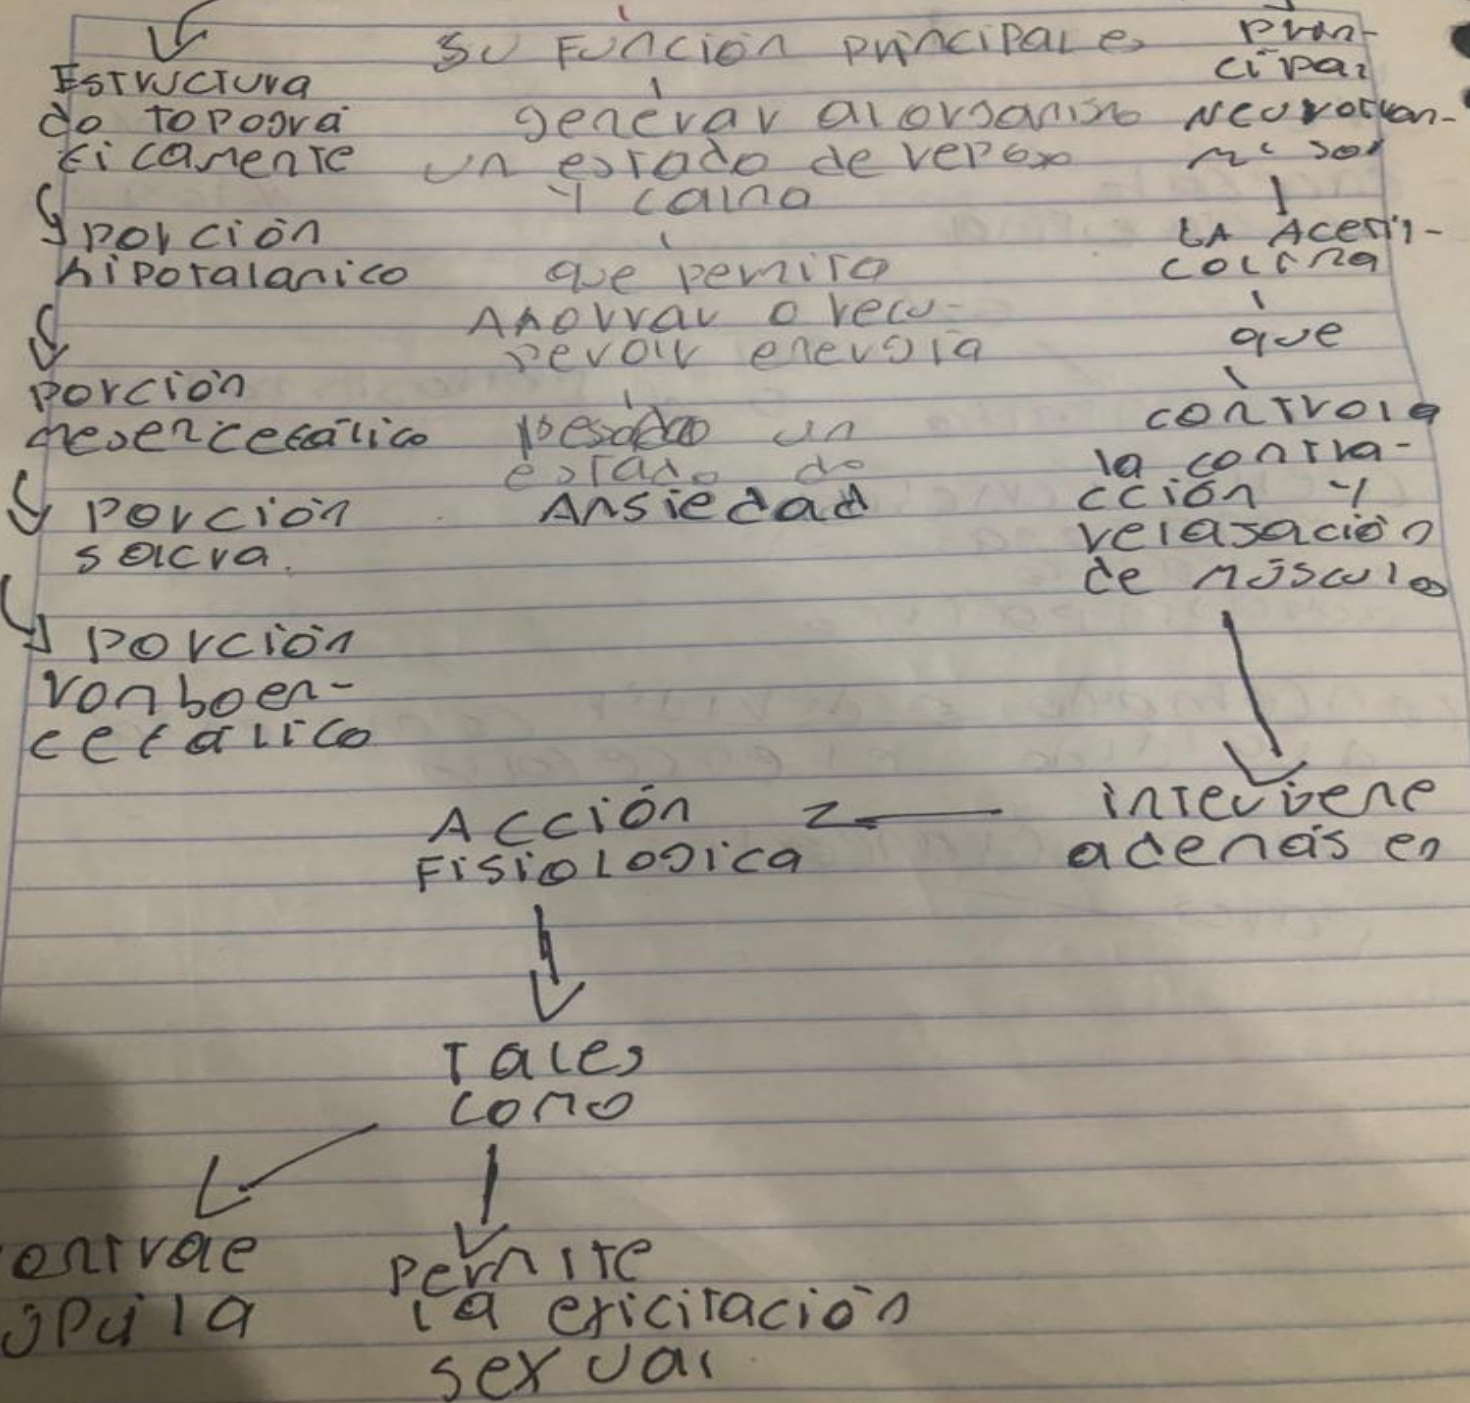 Estructura
do topogra
ficamente
porción
hipotalanico
porción
mesencefálico
porción
sacra.
porción
ronboen-
cefálico
su Función principal es
generar al organismo
un estado de reposo
y calma
que permita
Ahorrar o recu-
perar energía
un
estado de
Ansiedad
prin-
cipal
Neurotran-
misor
LA Acetil-
colina
que
controla
la contra-
cción y
relajación
de músculo
interviene
además en
Acción
Fisiologica
Tales
como
permite
la exicitación
sexual